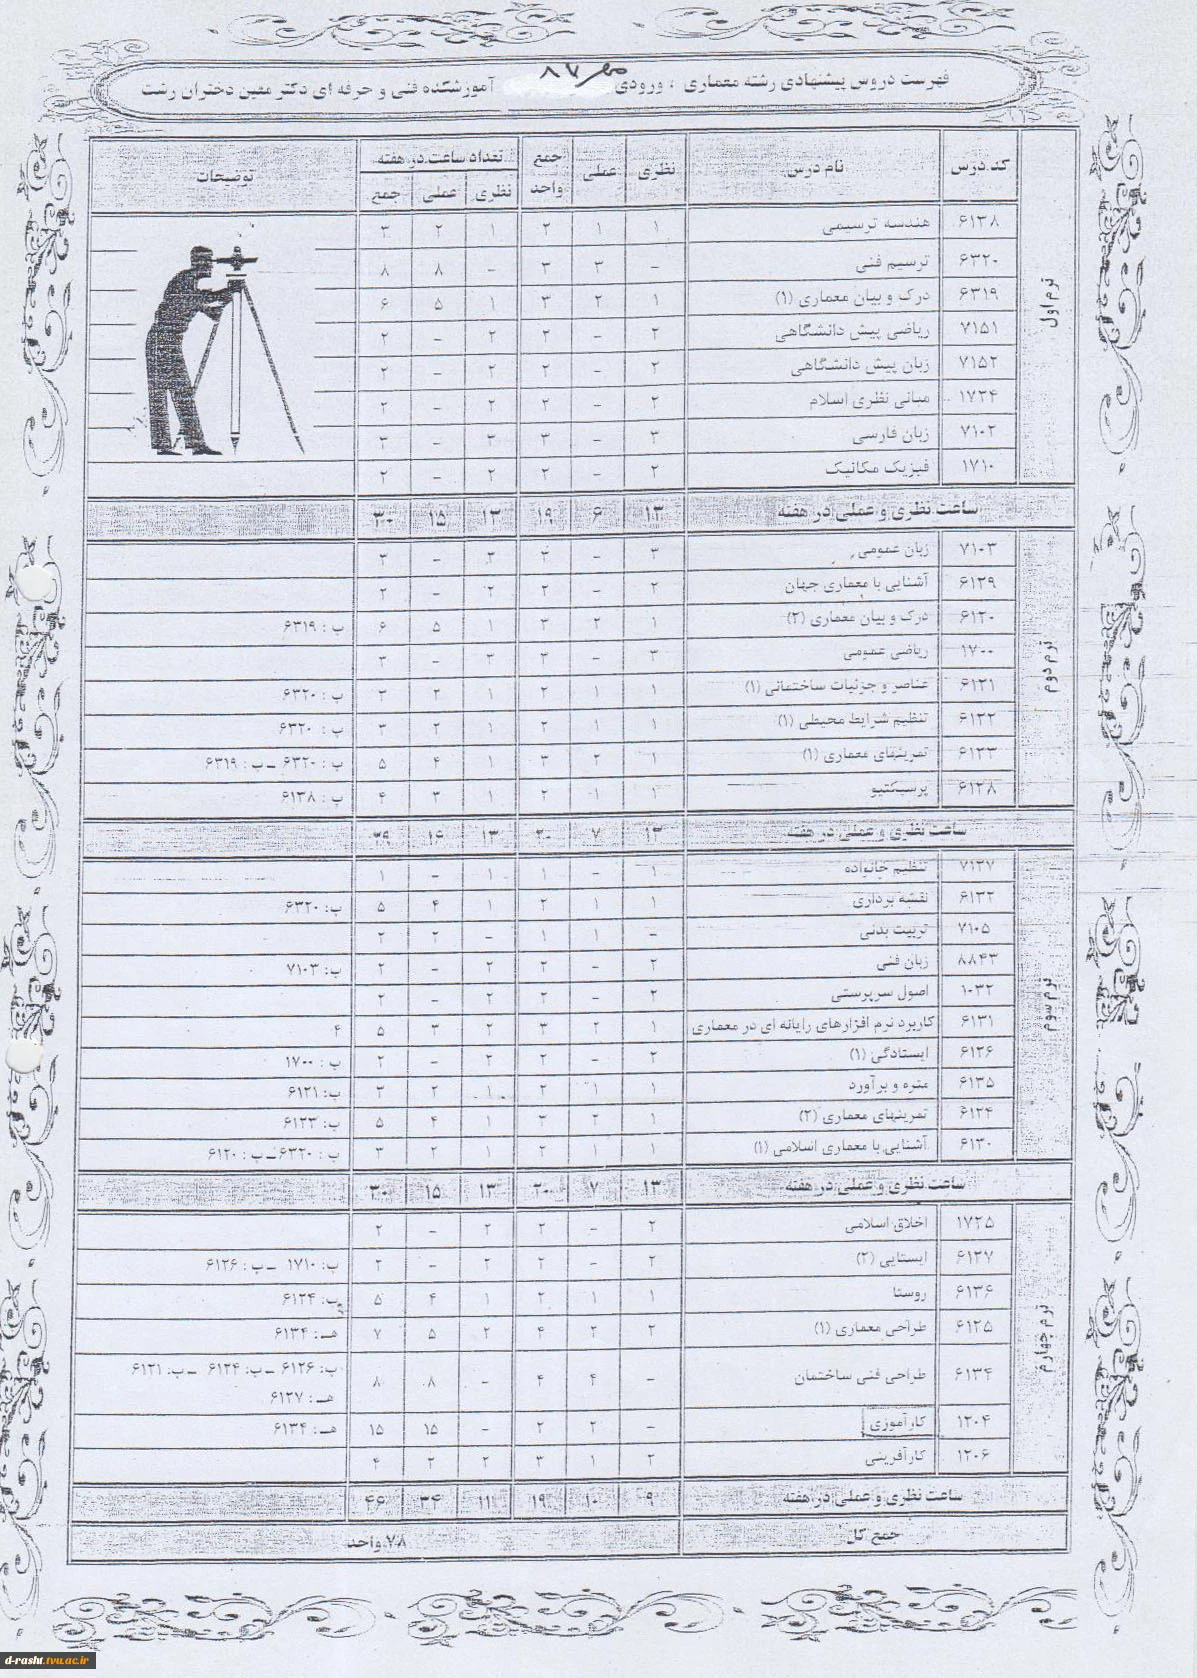 فهرست دروس پیشنهادی رشته معماری ، ورودی مهر ۸۷ آموزشکده فنی و حرفه ای دکتر معین دختران رشت
کد درس نام درس نظری عملی جمع واحد تعداد ساعت در هفته توضیحات
نظری عملی جمع
ترم اول
۶۱۳۸ هندسه ترسیمی ۱ ۱ ۲ ۱ ۲ ۳
۶۳۲۰ ترسیم فنی - ۳ ۳ - ۸ ۸
۶۳۱۹ درک و بیان معماری (۱) ۱ ۲ ۳ ۱ ۵ ۶
۷۱۵۱ ریاضی پیش دانشگاهی ۲ - ۲ ۲ - ۲
۷۱۵۲ زبان پیش دانشگاهی ۲ - ۲ ۲ - ۲
۱۷۲۴ مبانی نظری اسلام ۲ - ۲ ۲ - ۲
۷۱۰۲ زبان فارسی ۳ - ۳ ۳ - ۳
۱۷۱۰ فیزیک مکانیک ۲ - ۲ ۲ - ۲
ساعت نظری و عملی در هفته ۱۳ ۶ ۱۹ ۱۳ ۱۵ ۳۰
ترم دوم
۷۱۰۳ زبان عمومی ۳ - ۳ ۳ - ۳
۶۱۲۹ آشنایی با معماری جهان ۲ - ۲ ۲ - ۲
۶۱۲۰ درک و بیان معماری (۲) ۱ ۲ ۳ ۱ ۵ ۶ ب : ۶۳۱۹
۱۷۰۰ ریاضی عمومی ۳ - ۳ ۳ - ۳
۶۱۲۱ عناصر و جزئیات ساختمانی (۱) ۱ ۱ ۲ ۱ ۲ ۳ ب : ۶۳۲۰
۶۱۲۲ تنظیم شرایط محیطی (۱) ۱ ۱ ۲ ۱ ۲ ۳ ب : ۶۳۲۰
۶۱۲۳ تمرینهای معماری (۱) ۱ ۲ ۳ ۱ ۴ ۵ ب : ۶۳۲۰ ـ ب : ۶۳۱۹
۶۱۲۸ پرسپکتیو ۱ ۱ ۲ ۱ ۳ ۴ ب : ۶۱۳۸
ساعت نظری و عملی در هفته ۱۳ ۷ ۲۰ ۱۳ ۱۶ ۲۹
ترم سوم
۷۱۲۷ تنظیم خانواده ۱ - ۱ ۱ - ۱
۶۱۳۲ نقشه برداری ۱ ۱ ۲ ۱ ۴ ۵ ب: ۶۳۲۰
۷۱۰۵ تربیت بدنی - ۱ ۱ - ۲ ۲
۸۸۴۳ زبان فنی ۲ - ۲ ۲ - ۲ ب: ۷۱۰۳
۱۰۳۲ اصول سرپرستی ۲ - ۲ ۲ - ۲
۶۱۳۱ کاربرد نرم افزارهای رایانه ای در معماری ۱ ۲ ۳ ۲ ۳ ۵ ۴
۶۱۲۶ ایستادگی (۱) ۲ - ۲ ۲ - ۲ ب : ۱۷۰۰
۶۱۳۵ متره و برآورد ۱ ۱ ۲ ۱ ۲ ۳ ب: ۶۱۲۱
۶۱۲۴ تمرینهای معماری (۲) ۱ ۲ ۳ ۱ ۴ ۵ ب: ۶۱۲۳
۶۱۳۰ آشنایی با معماری اسلامی (۱) ۱ ۱ ۲ ۱ ۲ ۳ ب : ۶۳۲۰ ـ ب : ۶۱۲۰
ساعت نظری و عملی در هفته ۱۳ ۷ ۲۰ ۱۳ ۱۵ ۳۰
ترم چهارم
۱۷۲۵ اخلاق اسلامی ۲ - ۲ ۲ - ۲
۶۱۲۷ ایستایی (۲) ۲ - ۲ ۲ - ۲ ب: ۱۷۱۰ ـ ب : ۶۱۲۶
۶۱۳۶ روستا ۱ ۱ ۲ ۱ ۴ ۵ ب: ۶۱۲۴
۶۱۲۵ طراحی معماری (۱) ۲ ۲ ۴ ۲ ۵ ۷ هـ : ۶۱۳۴
۶۱۳۴ طراحی فنی ساختمان - ۴ ۴ - ۸ ۸ ب: ۶۱۲۶ ـ ب: ۶۱۲۴ ـ ب: ۶۱۲۱
هـ : ۶۱۲۷
۱۲۰۴ کارآموزی - ۲ ۲ - ۱۵ ۱۵ هـ : ۶۱۳۴
۱۲۰۶ کارآفرینی ۲ ۱ ۳ ۲ ۲ ۴
ساعت نظری و عملی در هفته ۹ ۱۰ ۱۹ ۱۱ ۳۴ ۴۶
جمع کل ۷۸ واحد
d-rasht.tvu.ac.ir